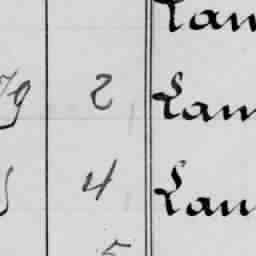 Lam
79 2 Lam
4 Lam
5